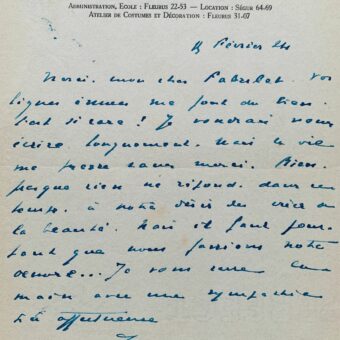 ADMINISTRATION, ECOLE : FLEURUS 22-53 — LOCATION : SÉGUR 64-69
ATELIER DE COSTUMES ET DÉCORATION : FLEURUS 31-07
Février 24
Merci, mon cher
lignes émues me font du bien.
C'est si rare ! Je voudrais vous
écrire longuement. Mais la vie
me presse sans merci. Rien,
presque rien ne répond, dans ce
temps, à notre désir de vivre de
la beauté. Mais il faut pour-
tant que nous fassions notre
oeuvre... Je vous serre la
main avec une sympathie
très affectueuse